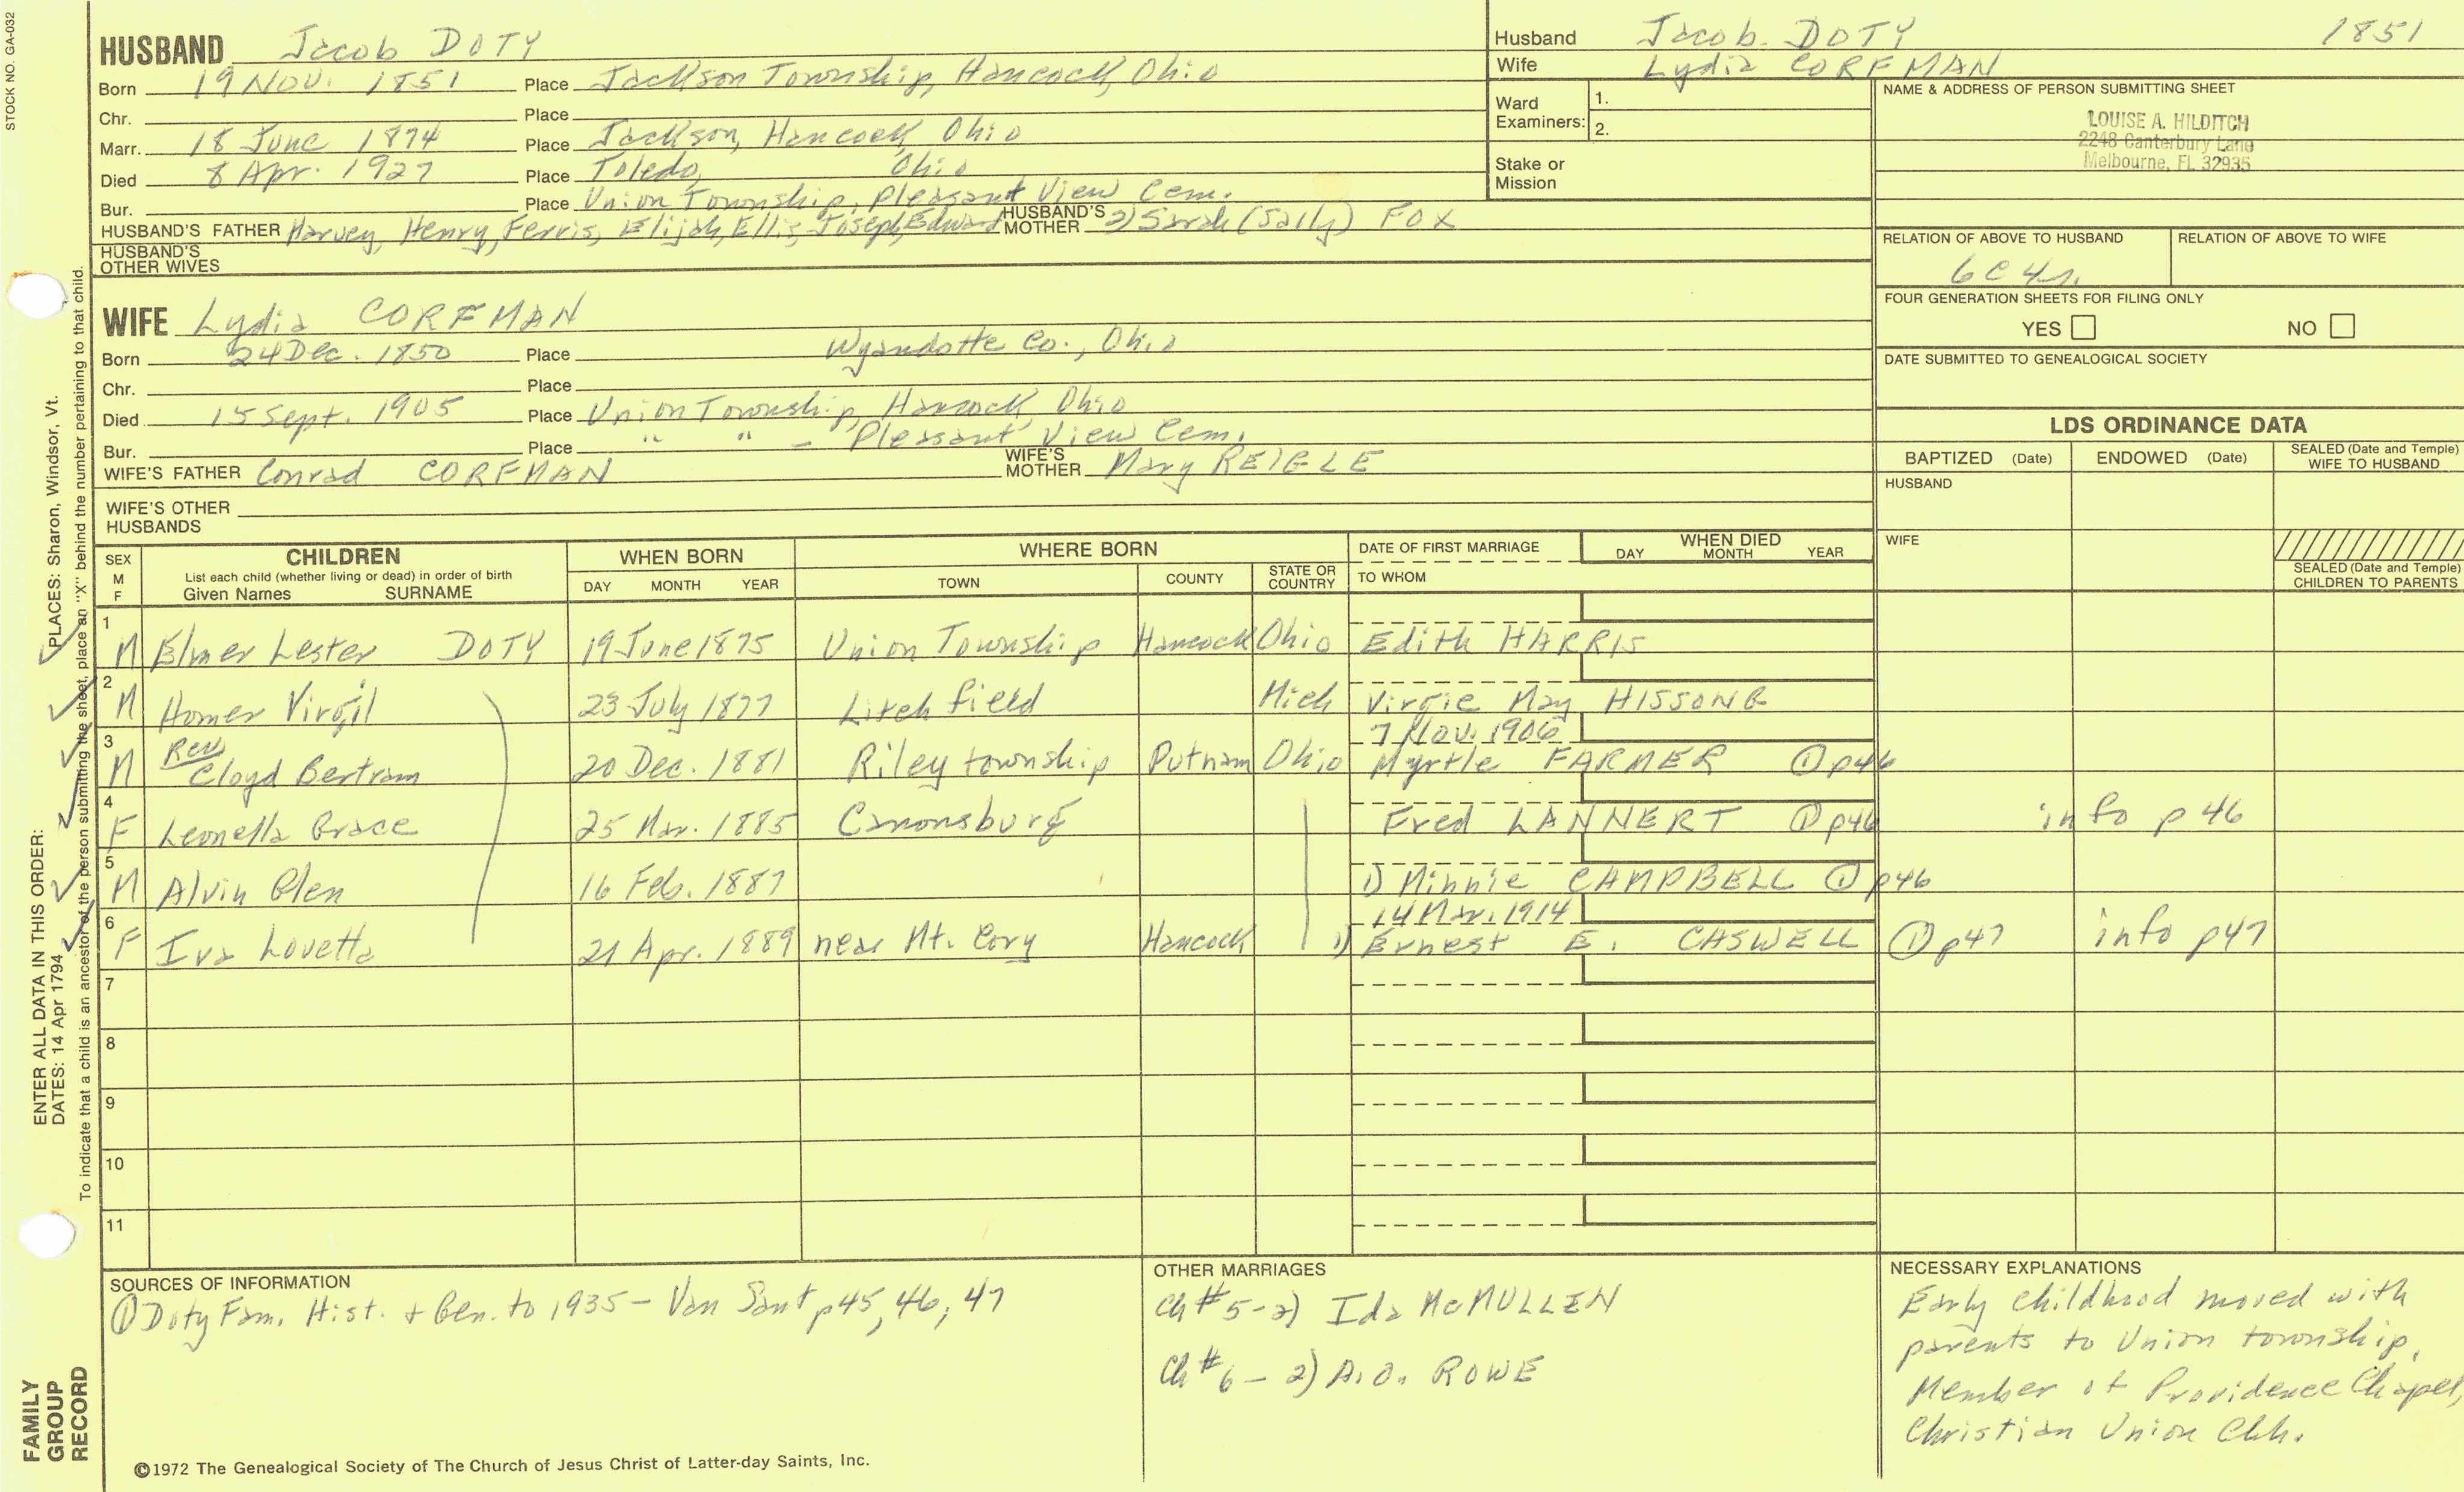 STOCK NO. GA-032
HUSBAND Jacob DOTY
Born 19 Nov. 1851 Place Jackson Township, Hancock, Ohio
Chr. Place
Marr. 18 June 1874 Place Jackson, Hancock, Ohio
Died 8 Apr. 1927 Place Toledo, Ohio
Bur. Place Union Township, Pleasant View Cem.
HUSBAND'S FATHER Harvey, Henry, Ferris, Elijah, Ellis, Joseph, Edward HUSBAND'S MOTHER 2) Sarah (Sally) FOX
HUSBAND'S OTHER WIVES
Husband Jacob DOTY 1851
Wife Lydia CORFMAN
Ward Examiners: 1.
2.
Stake or Mission
NAME & ADDRESS OF PERSON SUBMITTING SHEET
LOUISE A. HILDITCH
2248 Canterbury Lane
Melbourne, FL 32935
RELATION OF ABOVE TO HUSBAND RELATION OF ABOVE TO WIFE
6C4r.
FOUR GENERATION SHEETS FOR FILING ONLY
YES NO
DATE SUBMITTED TO GENEALOGICAL SOCIETY
WIFE Lydia CORFMAN
Born 24 Dec. 1850 Place Wyandotte Co., Ohio
Chr. Place
Died 15 Sept. 1905 Place Union Township, Hancock, Ohio
Bur. Place " " - Pleasant View Cem.
WIFE'S FATHER Conrad CORFMAN WIFE'S MOTHER Mary REIGLE
WIFE'S OTHER HUSBANDS
LDS ORDINANCE DATA
BAPTIZED (Date) ENDOWED (Date) SEALED (Date and Temple) WIFE TO HUSBAND
HUSBAND
WIFE
SEALED (Date and Temple) CHILDREN TO PARENTS
SEX M F CHILDREN List each child (whether living or dead) in order of birth Given Names SURNAME WHEN BORN DAY MONTH YEAR WHERE BORN TOWN COUNTY STATE OR COUNTRY DATE OF FIRST MARRIAGE TO WHOM WHEN DIED DAY MONTH YEAR
1 M Elmer Lester DOTY 19 June 1875 Union Township Hancock Ohio Edith HARRIS
2 M Homer Virgil 23 July 1877 Litchfield Mich Virgie May HISSONG
3 M Rev Cloyd Bertram 20 Dec. 1881 Riley township Putnam Ohio 7 Nov. 1906 Myrtle FARMER ① p46
4 F Leonella Grace 25 Mar. 1885 Canonsburg Fred LANNERT ① p46 info p 46
5 M Alvin Glen 16 Feb. 1887 1) Minnie CAMPBELL ① p46
6 F Iva Lovetta 21 Apr. 1889 near Mt. Cory Hancock 14 Mar. 1914 1) Ernest E. CASWELL ① p47 info p47
7
8
9
10
11
SOURCES OF INFORMATION
① Doty Fam. Hist. + Gen. to 1935 - Van Sant p45, 46, 47
OTHER MARRIAGES
Ch #5 - 2) Ida McMULLEN
Ch #6 - 2) A.O. ROWE
NECESSARY EXPLANATIONS
Early childhood moved with
parents to Union township,
Member of Providence Chapel,
Christian Union Chh.
©1972 The Genealogical Society of The Church of Jesus Christ of Latter-day Saints, Inc.
FAMILY
GROUP
RECORD
ENTER ALL DATA IN THIS ORDER:
DATES: 14 Apr 1794 PLACES: Sharon, Windsor, Vt.
To indicate that a child is an ancestor of the person submitting the sheet, place an "X" behind the number pertaining to that child.